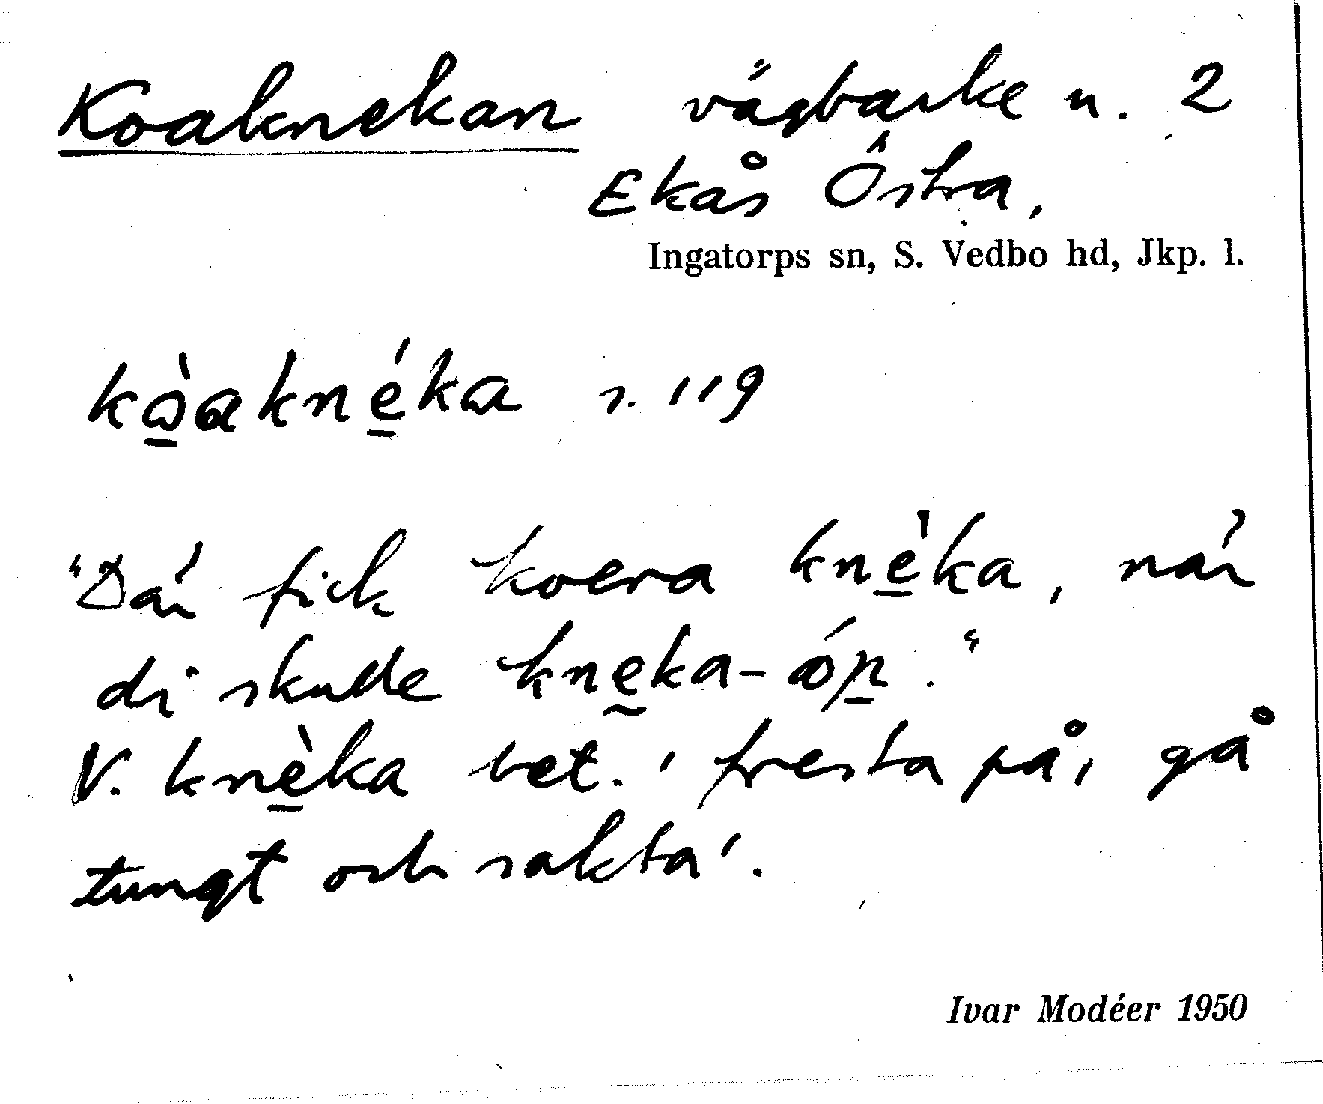 Koaknekan vägbacke n. 2
Ekås Östra,
Ingatorps sn, S. Vedbo hd, Jkp. l.
kòaknéka s. 119
"Där fick koera knèka, när
di skulle kneka-óp."
V. knèka bet. 'fresta på, gå
tungt och sakta'.
Ivar Modéer 1950